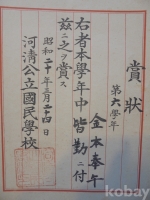 賞狀
第六學年
金本泰午
右者本學年中皆勤ニ付
玆ニ之ヲ賞ス
昭和二十年三月二十四日
河清公立國民學校
kobay